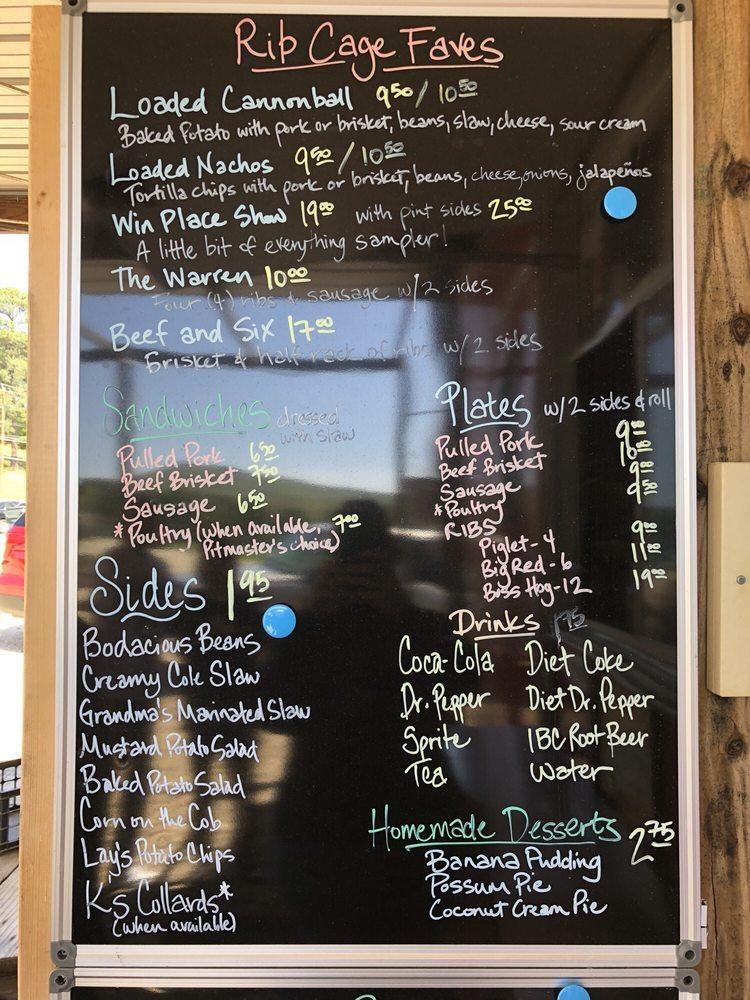 Rib Cage Faves
Loaded Cannonball 9.50 / 10.50
Baked Potato with pork or brisket, beans, slaw, cheese, sour cream
Loaded Nachos 9.50 / 10.50
Tortilla chips with pork or brisket, beans, cheese, onions, jalapeños
Win Place Show 19.00 with pint sides 25.00
A little bit of everything sampler!
The Warren 10.00
Four (4) ribs & sausage w/ 2 sides
Beef and Six 17.00
Brisket & half rack of ribs w/ 2 sides
Sandwiches dressed
with slaw
Pulled Pork 6.50
Beef Brisket 7.50
Sausage 6.50
*Poultry (when available, 7.00
Pitmaster's choice)
Plates w/ 2 sides & roll
Pulled Pork 9.00
Beef Brisket
Sausage
*Poultry
RIBS
Piglet-4 9.00
Big Red-6 11.00
Boss Hog-12 19.00
Sides 1.95
Bodacious Beans
Creamy Cole Slaw
Grandma's Marinated Slaw
Mustard Potato Salad
Baked Potato Salad
Corn on the Cob
Lay's Potato Chips
K's Collards*
(when available)
Drinks 1.75
Coca-Cola Diet Coke
Dr. Pepper Diet Dr. Pepper
Sprite IBC Root Beer
Tea Water
Homemade Desserts 2.75
Banana Pudding
Possum Pie
Coconut Cream Pie